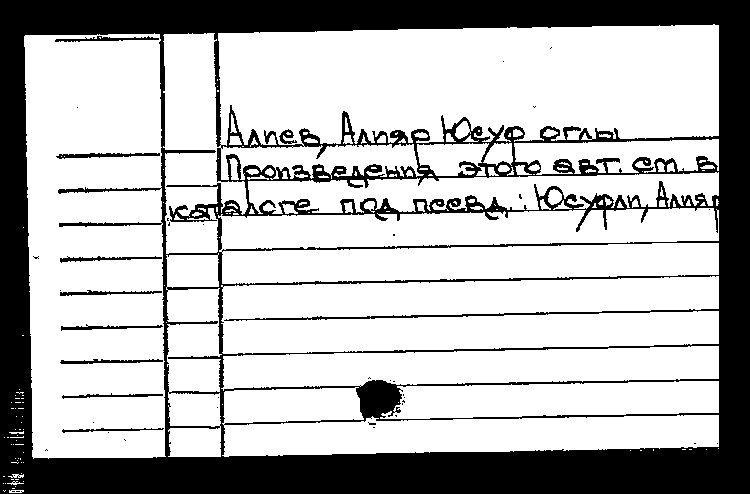 Алиев, Алияр Юсуф оглы
Произведения этого авт. см. в
каталоге под псевд.: Юсуфли, Алияр